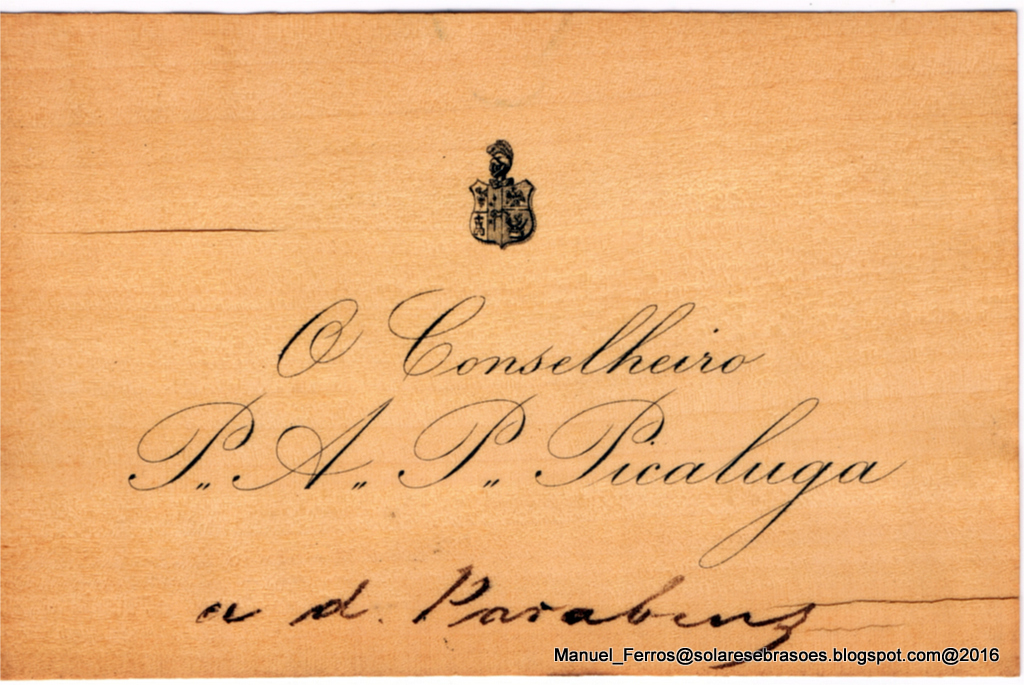 O Conselheiro
P.. A.. P.. Picaluga
a d. Parabens
Manuel_Ferros@solaresebrasoes.blogspot.com@2016